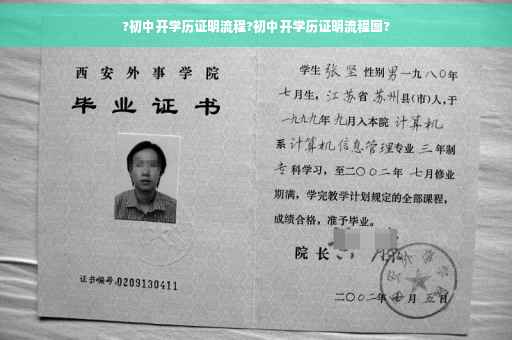 ?初中开学历证明流程?初中开学历证明流程图?
西安外事学院
毕业证书
证书编号:0209130411
学生 张坚 性别 男 一九八〇年
七月生,江苏省 苏州县(市)人,于
一九九九年 九月入本院 计算机
系 计算机信息管理专业 三 年制
专科学习,至二〇〇二年 七月修业
期满,学完教学计划规定的全部课程,
成绩合格,准予毕业。
院长
二〇〇二年 月 五日